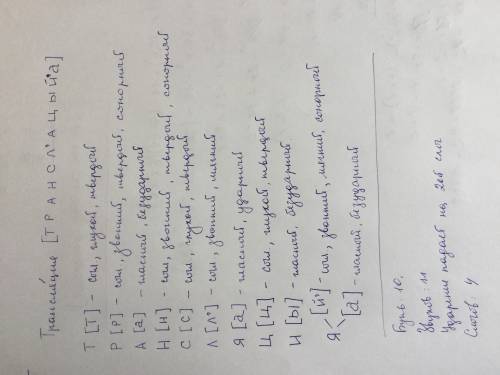 Трансляция [Т Р А Н С Л' А Ц Ы Й' а]
Т [Т] - согл, глухой, твердой
Р [Р] - согл, звонкий, твердой, сонорный
А [а] - гласной, безударной
Н [Н] - согл, звонкий, твердой, сонорный
С [С] - согл, глухой, твердой
Л [Л'] - согл, звонкий, мягкий
Я [а] - гласной, ударной
Ц [Ц] - согл, глухой, твердой
И [Ы] - гласной, безударной
Я [Й'] - согл, звонкий, мягкий, сонорной
[а] - гласной, безударной
Букв 10.
Звуков: 11
Ударение падает на 2ой слог
Слогов 4